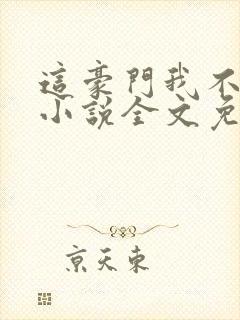 這豪門我不
小說全文免
京天東